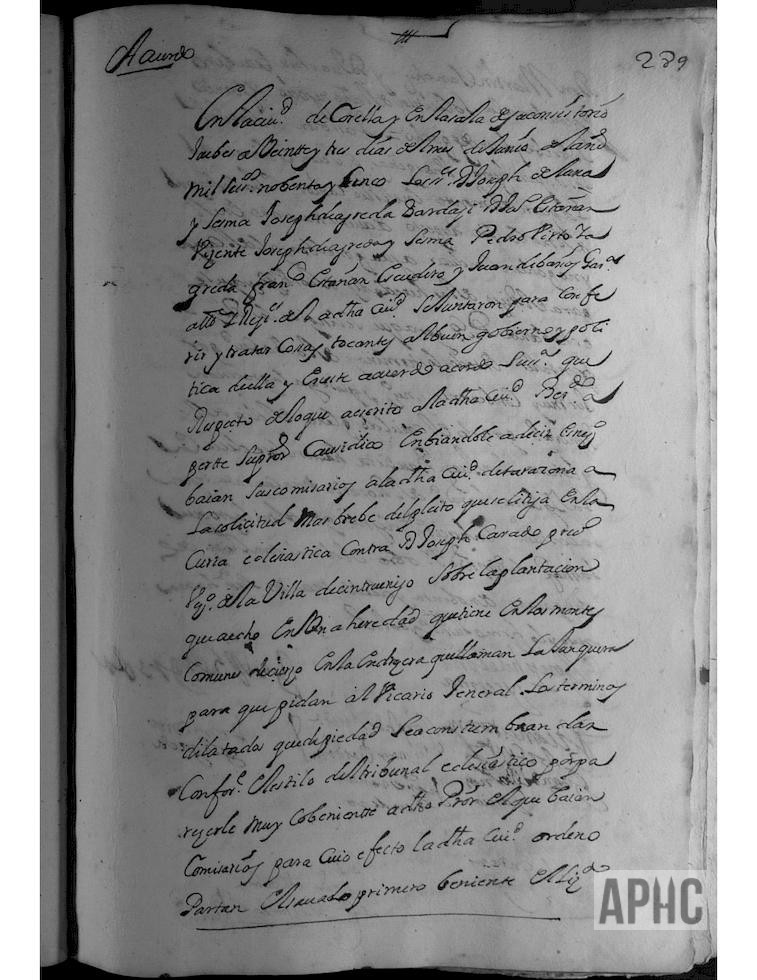 Acuerdo
289
En la ciu.d de Corella y En la sala de su consistorio
Juebes a Veintte y tres dias del mes de Junio del año
mil seis.os nobenta y Cinco Los ss.res D Joseph de Luna
y Sesma Joseph de agreda Bardaji D J.s Estañan
Vizente Joseph de agreda y Sesma Pedro Virto
greda fran.co Estañan Escudero y Juan de baños Gar.a
All.e y Rejid.s de la dha Ciu.d se Juntaron para Confe
rir y tratar Cosas tocantes al buen gobierno y poli
tica de ella y En este acuerdo acordo Su ss.a que
Respecto de lo que a escrito a la dha Ciu.d
su pror Causidico Enbiandole a decir
baian sus comisarios a la dha Ciu.d de tarazona a
La solicitud mas brebe del pleito que se litija En la
Curia eclesiastica Contra D Joseph Carado
V.o de la Villa de cintruenijo Sobre la plantacion
que a echo En Una heredad que tiene En los montes
Comunes de cierzo En la Endrezera que llaman La
para que pidan al Vicario Jeneral Los terminos
dilatados que de piedad se a constumbran dar
Confor.e el estilo del tribunal eclesiastico por pa
rezerle muy Cobeniente a dho Pror el que baian
Comisarios para Cuio efecto la dha Ciu.d ordeno
Partan el sauado primero beniente
APHC